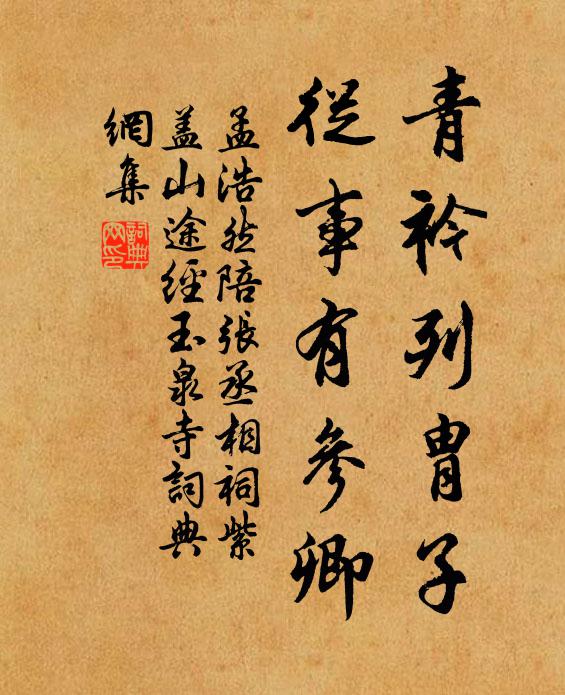 青衿列胄子
從事有參卿
孟浩然陪張丞相祠紫
蓋山途經玉泉寺詞典
網集
詞典
网印